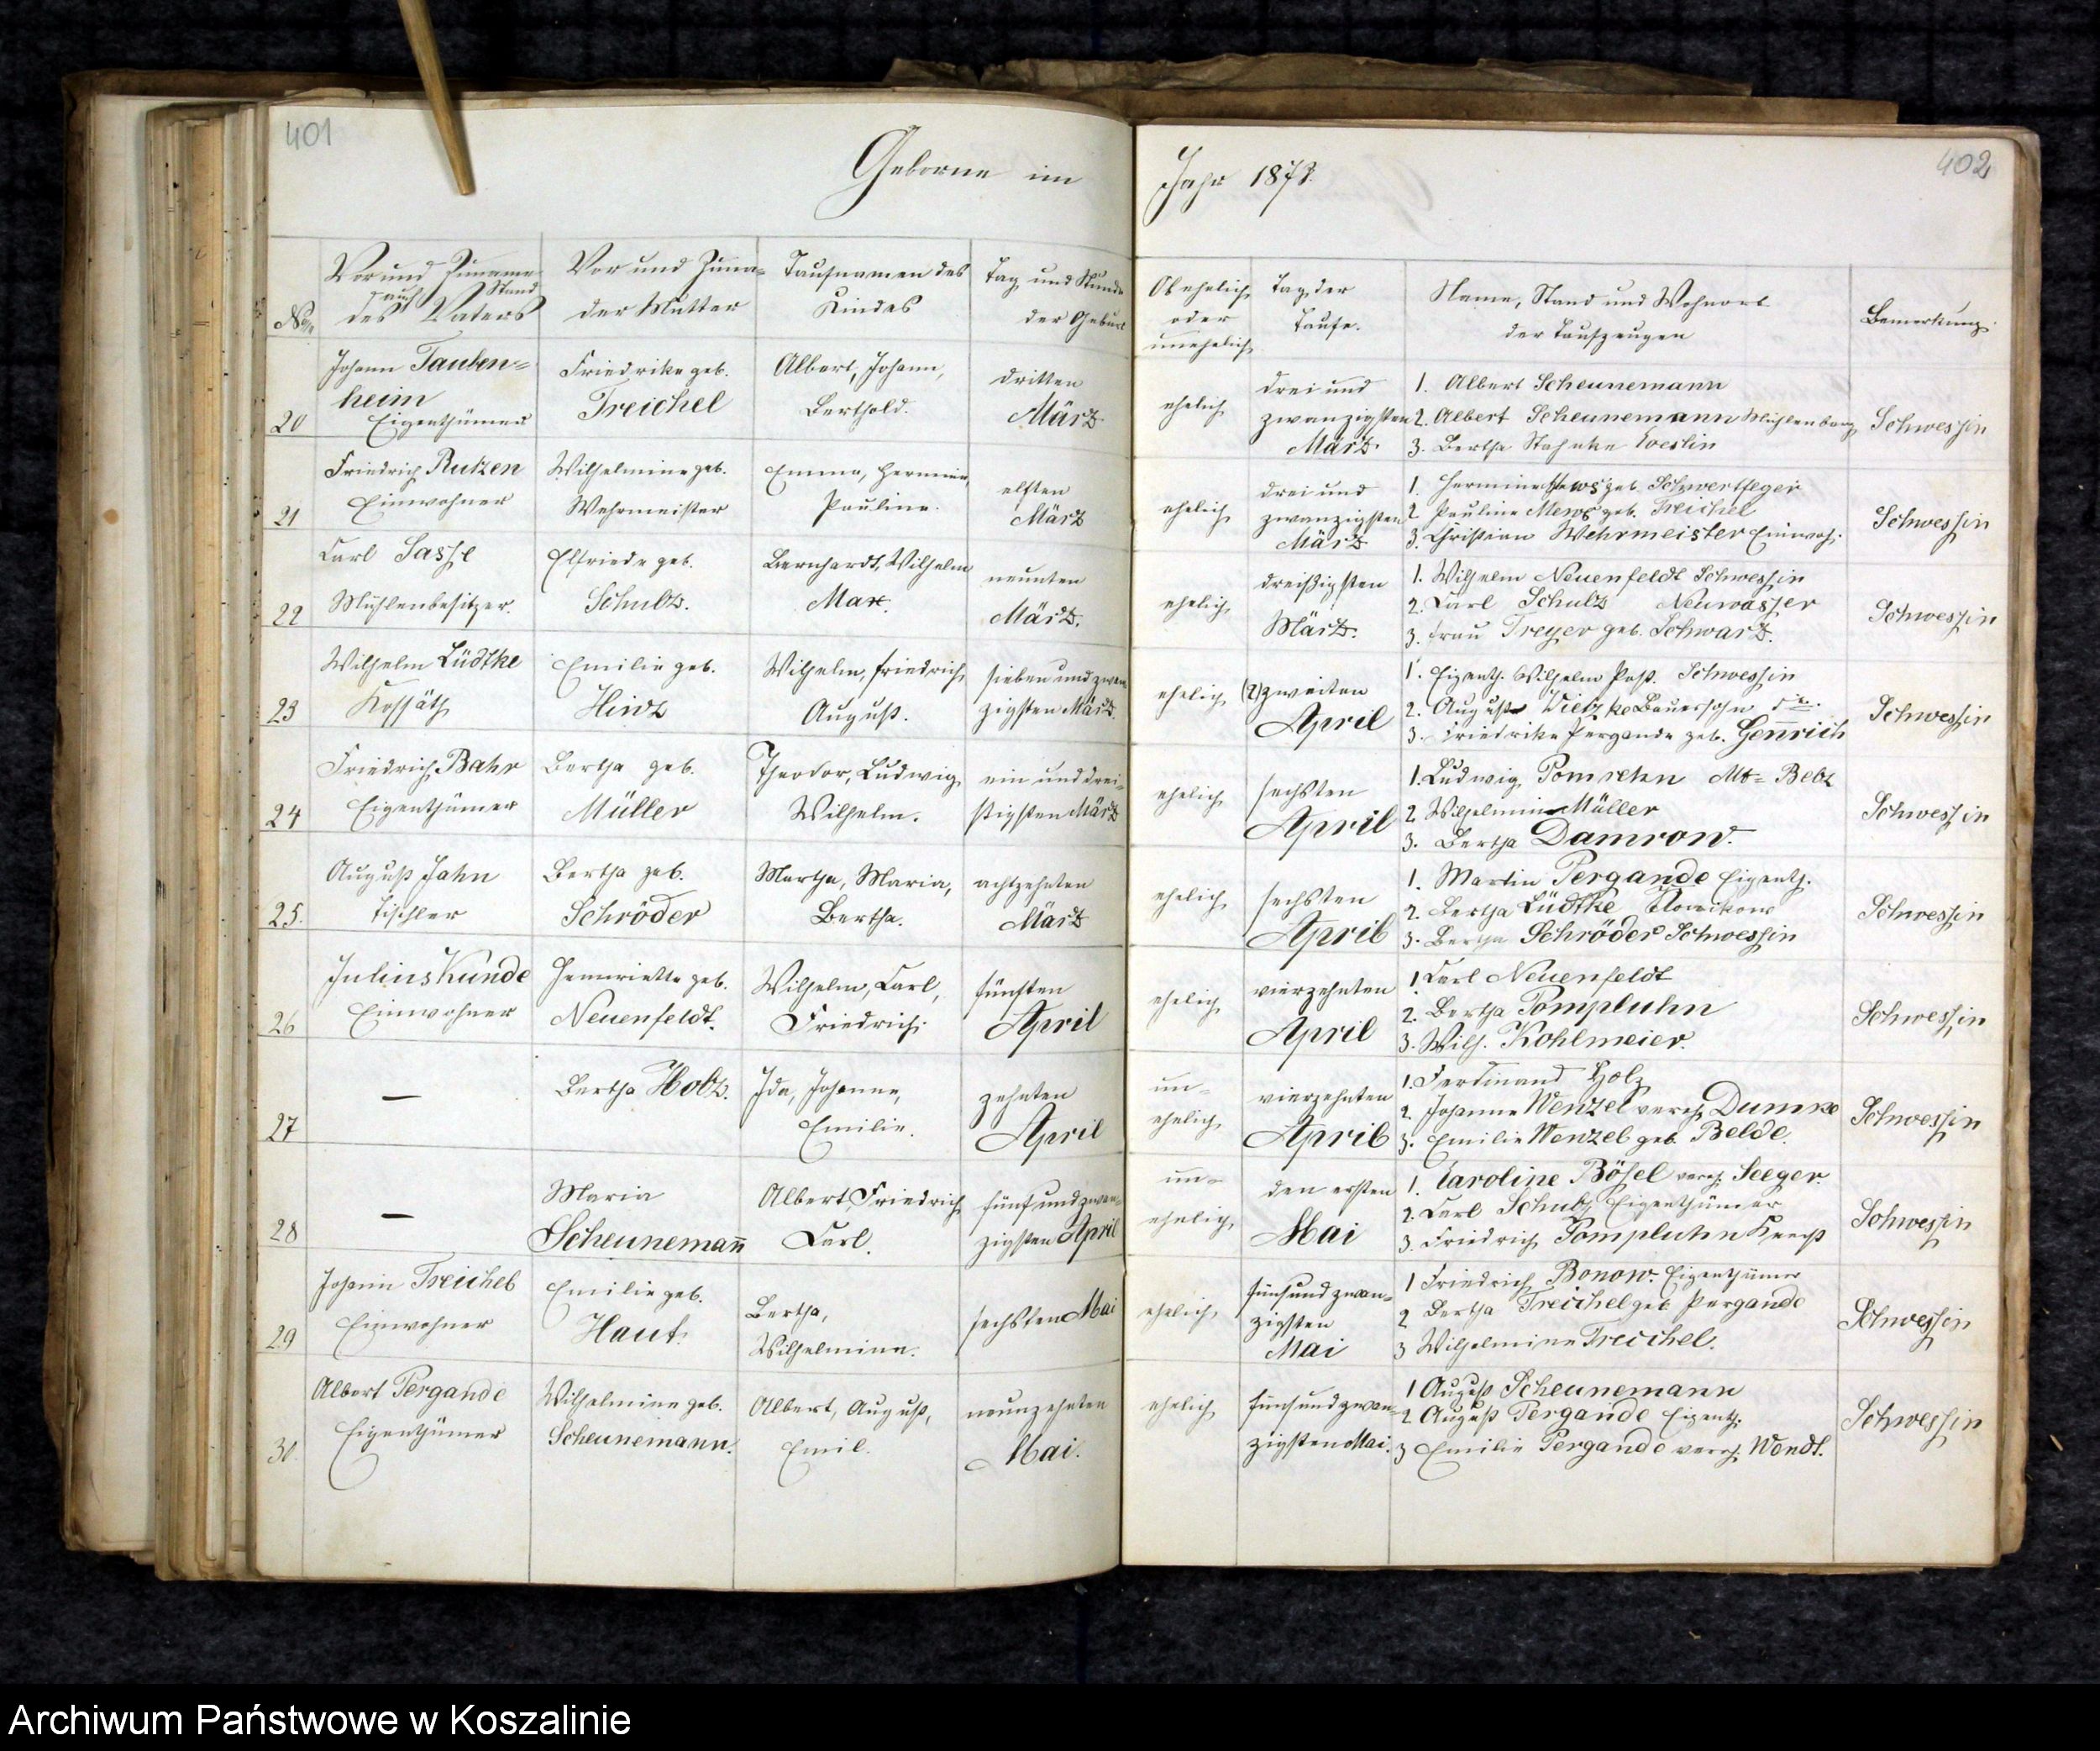 401
Geborne im
No
Vor und Zuname
auch Stand
des Vaters
Vor und Zuna-
der Mutter
Taufnamen des
Kindes
Tag und Stunde
der Geburt
20
Johann Tauben=
heim
Eigenthümer
Friedrike geb.
Treichel
Albert, Johann,
Berthold.
dritten
März
21
Friedrich Rutzen
Einwohner
Wilhelmine geb.
Wehrmeister
Emma, Hermine,
Pauline.
elften
März
22
Carl Sasse
Mühlenbesitzer.
Elfriede geb.
Schulz.
Bernhardt, Wilhelm
Max.
neunten
März.
23
Wilhelm Lüdtke
Kossäth
Emilie geb.
Hinz
Wilhelm, Friedrich,
August.
sieben und zwan-
zigsten März.
24
Friedrich Bahr
Eigenthümer
Bertha geb.
Müller
Theodor, Ludwig,
Wilhelm.
ein und drei-
ßigsten März
25.
August Jahn
Tischler
Bertha geb.
Schröder
Martha, Maria,
Bertha.
achtzehnten
März
26
Julius Kunde
Einwohner
Henriette geb.
Neuenfeldt.
Wilhelm, Carl,
Friedrich.
fünften
April
27
—
Bertha Holz.
Ida, Johanne,
Emilie.
zehnten
April
28
—
Maria
Scheunemañ
Albert, Friedrich,
Carl.
fünf und zwan-
zigsten April
29
Johann Treichel
Einwohner
Emilie geb.
Haut.
Bertha,
Wilhelmine.
sechsten Mai
30.
Albert Pergande
Eigenthümer
Wilhelmine geb.
Scheunemann.
Albert, August,
Emil.
neunzehnten
Mai.
402
Jahr 1873.
Ob ehelich
oder
unehelich
Tag der
Taufe.
Name, Stand und Wohnort
der Taufzeugen
Bemerkung.
ehelich
drei und
zwanzigsten
März
1. Albert Scheunemann
2. Albert Scheunemann Mühlenberg
3. Bertha Stahnke Coeslin
Schwessin
ehelich
drei und
zwanzigsten
März
1. Hermine Mews geb. Schwertfeger
2 Pauline Mews geb. Treichel
3. Christian Wehrmeister Einwoh.
Schwessin
ehelich
dreißigsten
März.
1. Wilhelm Neuenfeldt Schwessin
2. Carl Schulz Neuwasser
3. Frau Treyer geb. Schwarz.
Schwessin
ehelich
(2) zweiten
April
1. Eigenth. Wilhelm Paß. Schwessin
2. August Vietzke Bauersohn
3. Friedrike Pergande geb. Geñrich
Schwessin
ehelich
sechsten
April
1. Ludwig Pomrehn Alt= Belz
2 Wilhelmine Müller
3. Bertha Damrow.
Schwessin
ehelich
sechsten
April
1. Martin Pergande Eigenth.
2. Bertha Lüdtke
3. Bertha Schröder Schwessin
Schwessin
ehelich
vierzehnten
April
1. Carl Neuenfeldt
2. Bertha Pompluhn
3. Wilh. Kohlmeier.
Schwessin
un-
ehelich
vierzehnten
April
1. Ferdinand Holz
2. Johanne Wenzel vereh. Dumke
3. Emilie Wenzel geb. Belde.
Schwessin
un-
ehelich
den ersten
Mai
1. Caroline Bösel vereh. Seeger
2. Carl Schulz Eigenthümer
3. Friedrich Pompluhn Knecht
Schwessin
ehelich
fünfund zwan-
zigsten
Mai
1 Friedrich Bonow. Eigenthümer
2 Bertha Treichel geb Pergande
3 Wilhelmine Treichel.
Schwessin
ehelich
fünfundzwan-
zigsten Mai.
1 August Scheunemann
2 August Pergande Eigenth.
3 Emilie Pergande vereh. Wendt.
Schwessin
Archiwum Państwowe w Koszalinie